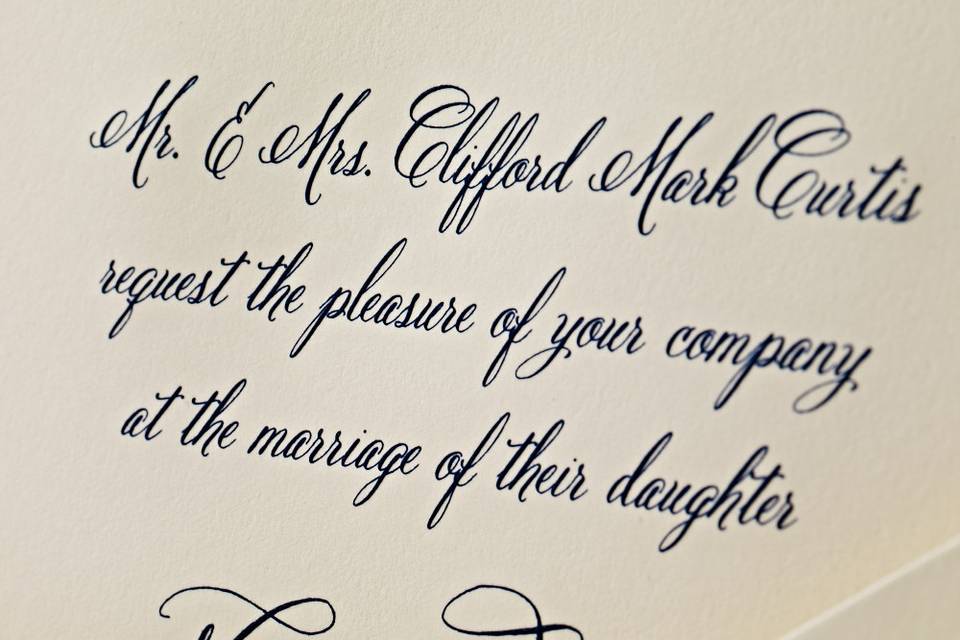 Mr. & Mrs. Clifford Mark Curtis
request the pleasure of your company
at the marriage of their daughter